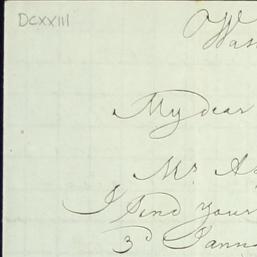 DCXXIII
Was
My dear
Mr As
I find your
3d Janu